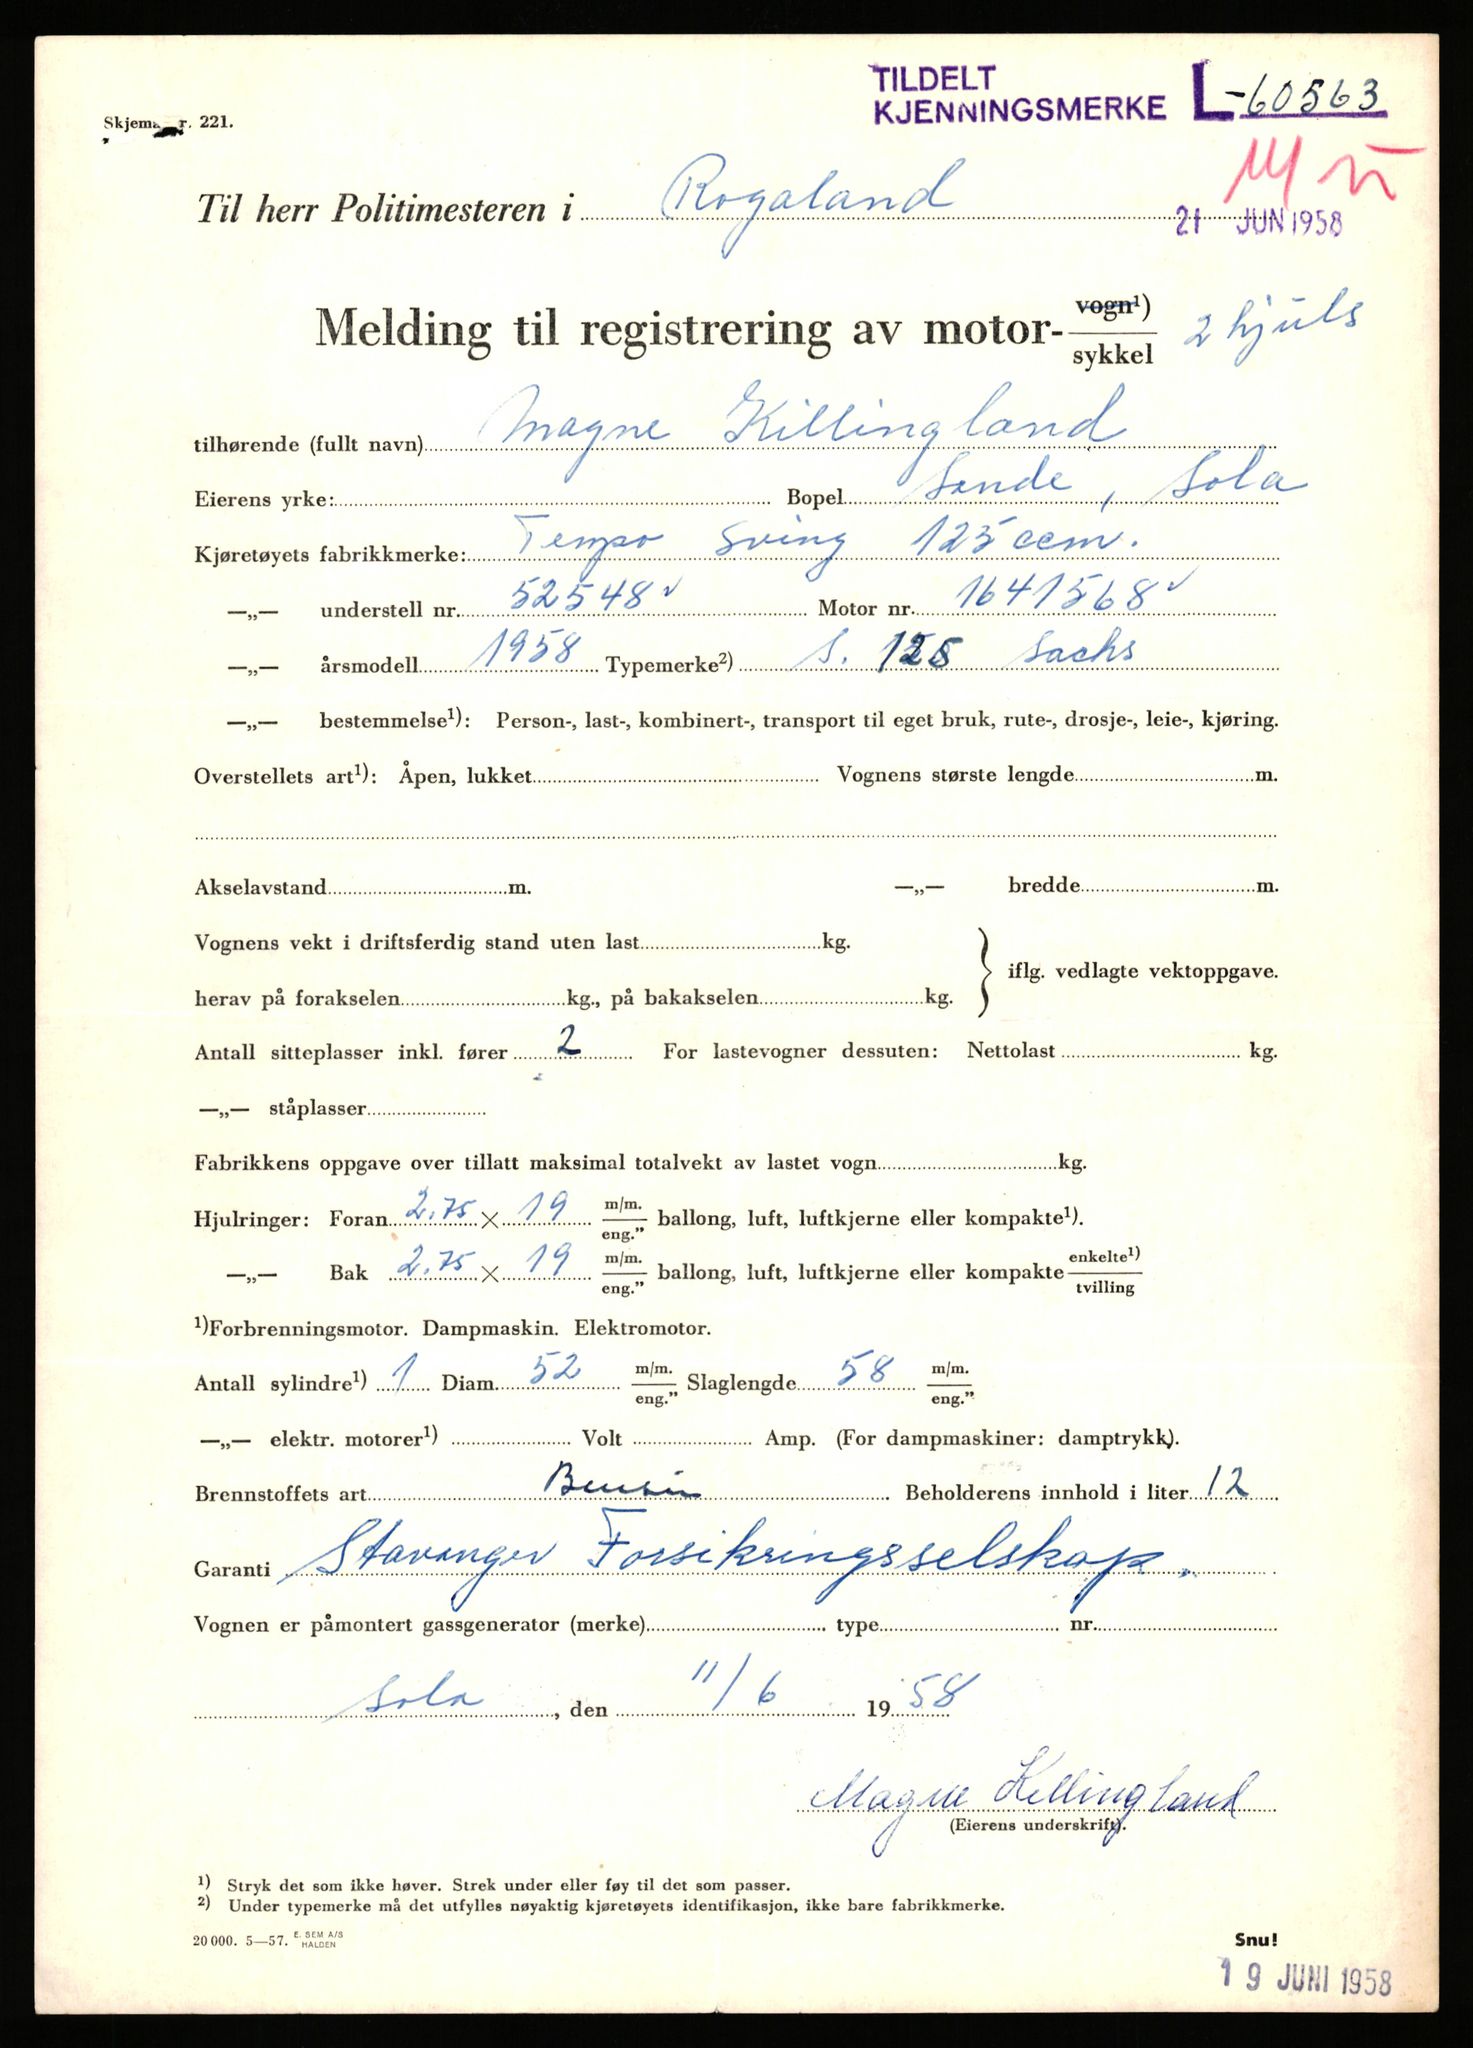 TILDELT
KJENNINGSMERKE L-60563
Skjema nr. 221.
Til herr Politimesteren i Rogaland
21 JUN 1958
Melding til registrering av motor- vogn¹) / sykkel 2 hjuls
tilhørende (fullt navn) Magne Killingland
Eierens yrke: Bopel Sande, Sola
Kjøretøyets fabrikkmerke: Tempo Swing 125 ccm.
—„— understell nr. 52548 Motor nr. 1641568
—„— årsmodell 1958 Typemerke²) S. 125 Sachs
—„— bestemmelse¹): Person-, last-, kombinert-, transport til eget bruk, rute-, drosje-, leie-, kjøring.
Overstellets art¹): Åpen, lukket Vognens største lengde m.
Akselavstand m. —„— bredde m.
Vognens vekt i driftsferdig stand uten last kg.
iflg. vedlagte vektoppgave.
herav på forakselen kg., på bakakselen kg.
Antall sitteplasser inkl. fører 2 For lastevogner dessuten: Nettolast kg.
—„— ståplasser
Fabrikkens oppgave over tillatt maksimal totalvekt av lastet vogn kg.
Hjulringer: Foran 2.75 × 19 m/m. / eng.” ballong, luft, luftkjerne eller kompakte¹).
—„— Bak 2.75 × 19 m/m. / eng.” ballong, luft, luftkjerne eller kompakte enkelte¹) / tvilling
¹)Forbrenningsmotor. Dampmaskin. Elektromotor.
Antall sylindre¹) 1 Diam. 52 m/m. / eng.” Slaglengde 58 m/m. / eng.”
—„— elektr. motorer¹) Volt Amp. (For dampmaskiner: damptrykk).
Brennstoffets art Bensin Beholderens innhold i liter 12
Garanti Stavanger Forsikringsselskap.
Vognen er påmontert gassgenerator (merke) type nr.
Sola, den 11/6 1958
Magne Killingland
(Eierens underskrift).
¹) Stryk det som ikke høver. Strek under eller føy til det som passer.
²) Under typemerke må det utfylles nøyaktig kjøretøyets identifikasjon, ikke bare fabrikkmerke.
20 000. 5—57. E. SEM A/S HALDEN
Snu!
19 JUNI 1958